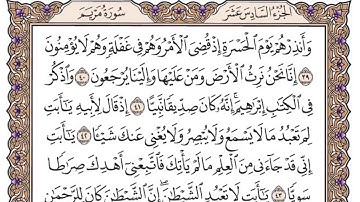 الجزء السادس عشر سورة مريم
وَأَنذِرْهُمْ يَوْمَ ٱلْحَسْرَةِ إِذْ قُضِىَ ٱلْأَمْرُ وَهُمْ فِى غَفْلَةٍ وَهُمْ لَا يُؤْمِنُونَ
٣٩ إِنَّا نَحْنُ نَرِثُ ٱلْأَرْضَ وَمَنْ عَلَيْهَا وَإِلَيْنَا يُرْجَعُونَ ٤٠ وَٱذْكُرْ
فِى ٱلْكِتَٰبِ إِبْرَٰهِيمَ إِنَّهُۥ كَانَ صِدِّيقًا نَّبِيًّا ٤١ إِذْ قَالَ لِأَبِيهِ يَٰٓأَبَتِ
لِمَ تَعْبُدُ مَا لَا يَسْمَعُ وَلَا يُبْصِرُ وَلَا يُغْنِى عَنكَ شَيْـًٔا ٤٢ يَٰٓأَبَتِ
إِنِّى قَدْ جَآءَنِى مِنَ ٱلْعِلْمِ مَا لَمْ يَأْتِكَ فَٱتَّبِعْنِىٓ أَهْدِكَ صِرَٰطًا
سَوِيًّا ٤٣ يَٰٓأَبَتِ لَا تَعْبُدِ ٱلشَّيْطَٰنَ إِنَّ ٱلشَّيْطَٰنَ كَانَ لِلرَّحْمَٰنِ